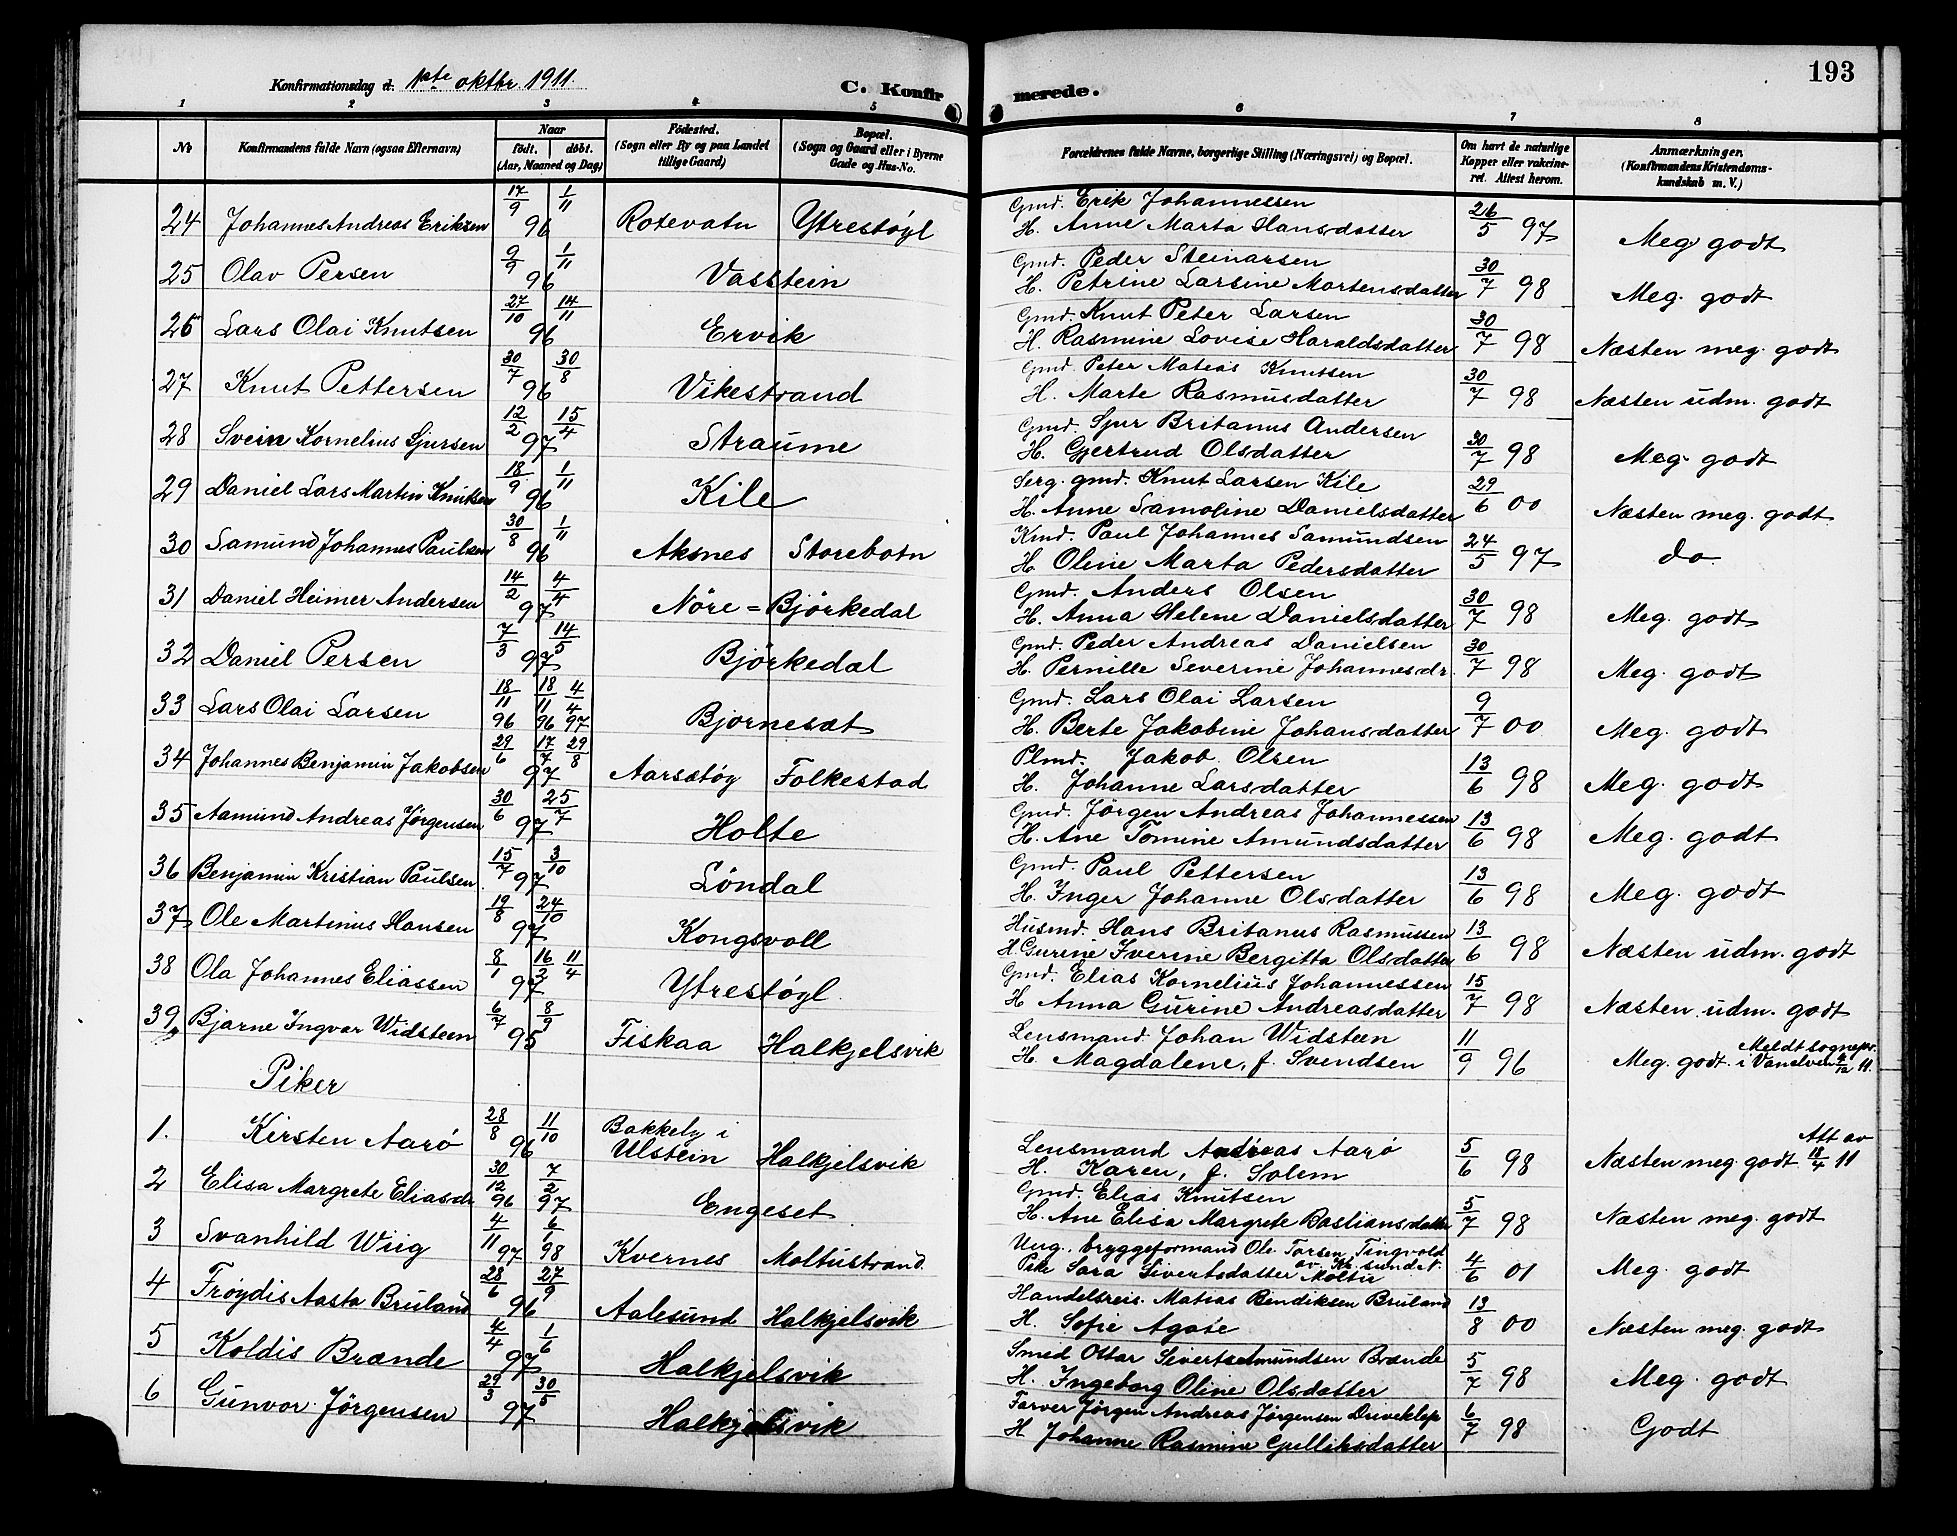 193
Konfirmationsdag d. 1ste oktbr. 1911.
C. Konfirmerede.
1 2 3 4 5 6 7 8
No
Konfirmandens fulde Navn (ogsaa Efternavn)
Naar
født. døbt.
(Aar, Maaned og Dag)
Fødested.
(Sogn eller By og paa Landet
tillige Gaard)
Bopæl.
(Sogn og Gaard eller i Byerne
Gade og Hus-No.
Forældrenes fulde Navne, borgerlige Stilling (Næringsvei) og Bopæl.
Om havt de naturlige
Kopper eller vakcine-
ret. Attest herom.
Anmærkninger.
(Konfirmandens Kristendoms-
kundskab m. V.)
24 Johannes Andreas Eriksen 17/9 1/11 96 Rotevatn Ytrestøyl Gmd. Erik Johannessen
H. Anne Marta Hansdatter 26/5 97 Meg godt
25 Olav Persen 9/9 1/11 96 Vasstein Gmd. Peder Steinarsen
H. Petrine Larsine Mortensdatter 30/7 98 Meg. godt
26 Lars Olai Knutsen 27/10 14/11 96 Ervik Gmd. Knut Peter Larsen
H. Rasmine Lovise Haraldsdatter 30/7 98 Næsten meg. godt
27 Knut Pettersen 30/7 30/8 96 Vikestrand Gmd. Peter Matias Knutsen
H. Marte Rasmusdatter 30/7 98 Næsten udm. godt
28 Svein Kornelius Sjursen 12/2 15/4 97 Straume Gmd. Sjur Britanus Andersen
H. Gjertrud Olsdatter 30/7 98 Meg. godt
29 Daniel Lars Martin Knutsen 18/9 1/11 96 Kile Serg. gmd. Knut Larsen Kile
H. Anne Samoline Danielsdatter 29/6 00 Næsten meg. godt
30 Samund Johannes Paulsen 30/8 1/11 96 Aksnes Storebotn Kmd. Paul Johannes Samundsen
H Oline Marta Pedersdatter 24/5 97 do
31 Daniel Heimer Andersen 14/2 4/4 97 Nöre = Björkedal Gmd. Anders Olsen
H. Anna Helene Danielsdatter 30/7 98 Meg. godt
32 Daniel Persen 7/3 14/5 97 Björkedal Gmd. Peder Andreas Danielsen
H. Pernille Severine Johannesdr. 30/7 98 Meg. godt
33 Lars Olai Larsen 18/11 96 18/11 96 4/4 97 Bjornesæt Gmd. Lars Olai Larsen
H. Berte Jakobine Johansdatter 9/7 00 Meg. godt
34 Johannes Benjamin Jakobsen 29/6 17/7 29/8 97 Aarsetøy Folkestad Plmd. Jakob Olsen
H. Johanne Larsdatter 13/6 98 Meg. godt
35 Aamund Andreas Jörgensen 30/6 25/7 97 Holte Gmd. Jörgen Andreas Johannessen
H. Ane Tomine Amundsdatter 13/6 98 Meg. godt
36 Benjamin Kristian Paulsen 15/7 3/10 97 Löndal Gmd. Paul Pettersen
H. Inger Johanne Olsdatter 13/6 98 Meg. godt
37 Ole Martinus Hansen 19/8 24/10 97 Kongsvoll Husmd. Hans Britanus Rasmussen
H. Gurine Iverine Bergitta Olsdatter 13/6 98 Næsten udm. godt
38 Ola Johannes Eliassen 8/1 16/2 11/4 97 Ytrestøyl. Gmd. Elias Kornelius Johannessen
H Anna Gurine Andreasdatter 15/7 98 Næsten udm. godt
39 Bjarne Ingvar Widsteen 6/7 8/9 95 Fiskaa Halkjelsvik Lensmand Johan Widsteen
H. Magdalene, f. Svendsen 11/9 96 Meg. godt. Meldt sognepr.
i Vanelven 4/10 11.
Piker
1. Kirsten Aarö 28/8 11/10 96 Bakkely i
Ulstein Halkjelsvik Lensmand Andreas Aarö
H. Karen, f. Solem 5/6 98 Næsten meg. godt Att av
18/4 11
2 Elisa Margrete Eliasdr 30/12 96 7/2 97 Engeset Gmd. Elias Knutsen
H. Ane Elisa Margrete Bastiansdatter 5/7 98 Næsten meg. godt
3 Svanhild Wiig 4/11 97 6/1 98 Kvernes Moltustrand Ung. bryggeformand Ole Tarsen Tingvold
av Kr.sund N.
Pike Sara Sivertsdatter Moltu 4/6 01 Meg. godt
4 Fröydis Aasta Bruland 28/6 27/9 96 Aalesund Halkjelsvik Handelsreis. Matias Bendiksen Bruland
H. Sofie Agate 13/8 00 Næsten meg. godt
5 Koldis Brænde 4/4 1/6 97 Halkjelsvik Smed Ottar Sivert Amundsen Brænde
H. Ingeborg Oline Olsdatter 5/7 98 Meg. godt
6 Gunvor Jörgensen 29/3 30/5 97 Halkjelsvik Farver Jörgen Andreas Jörgensen Driveklep
H Johanne Rasmine Gulliksdatter 6/7 98 Godt